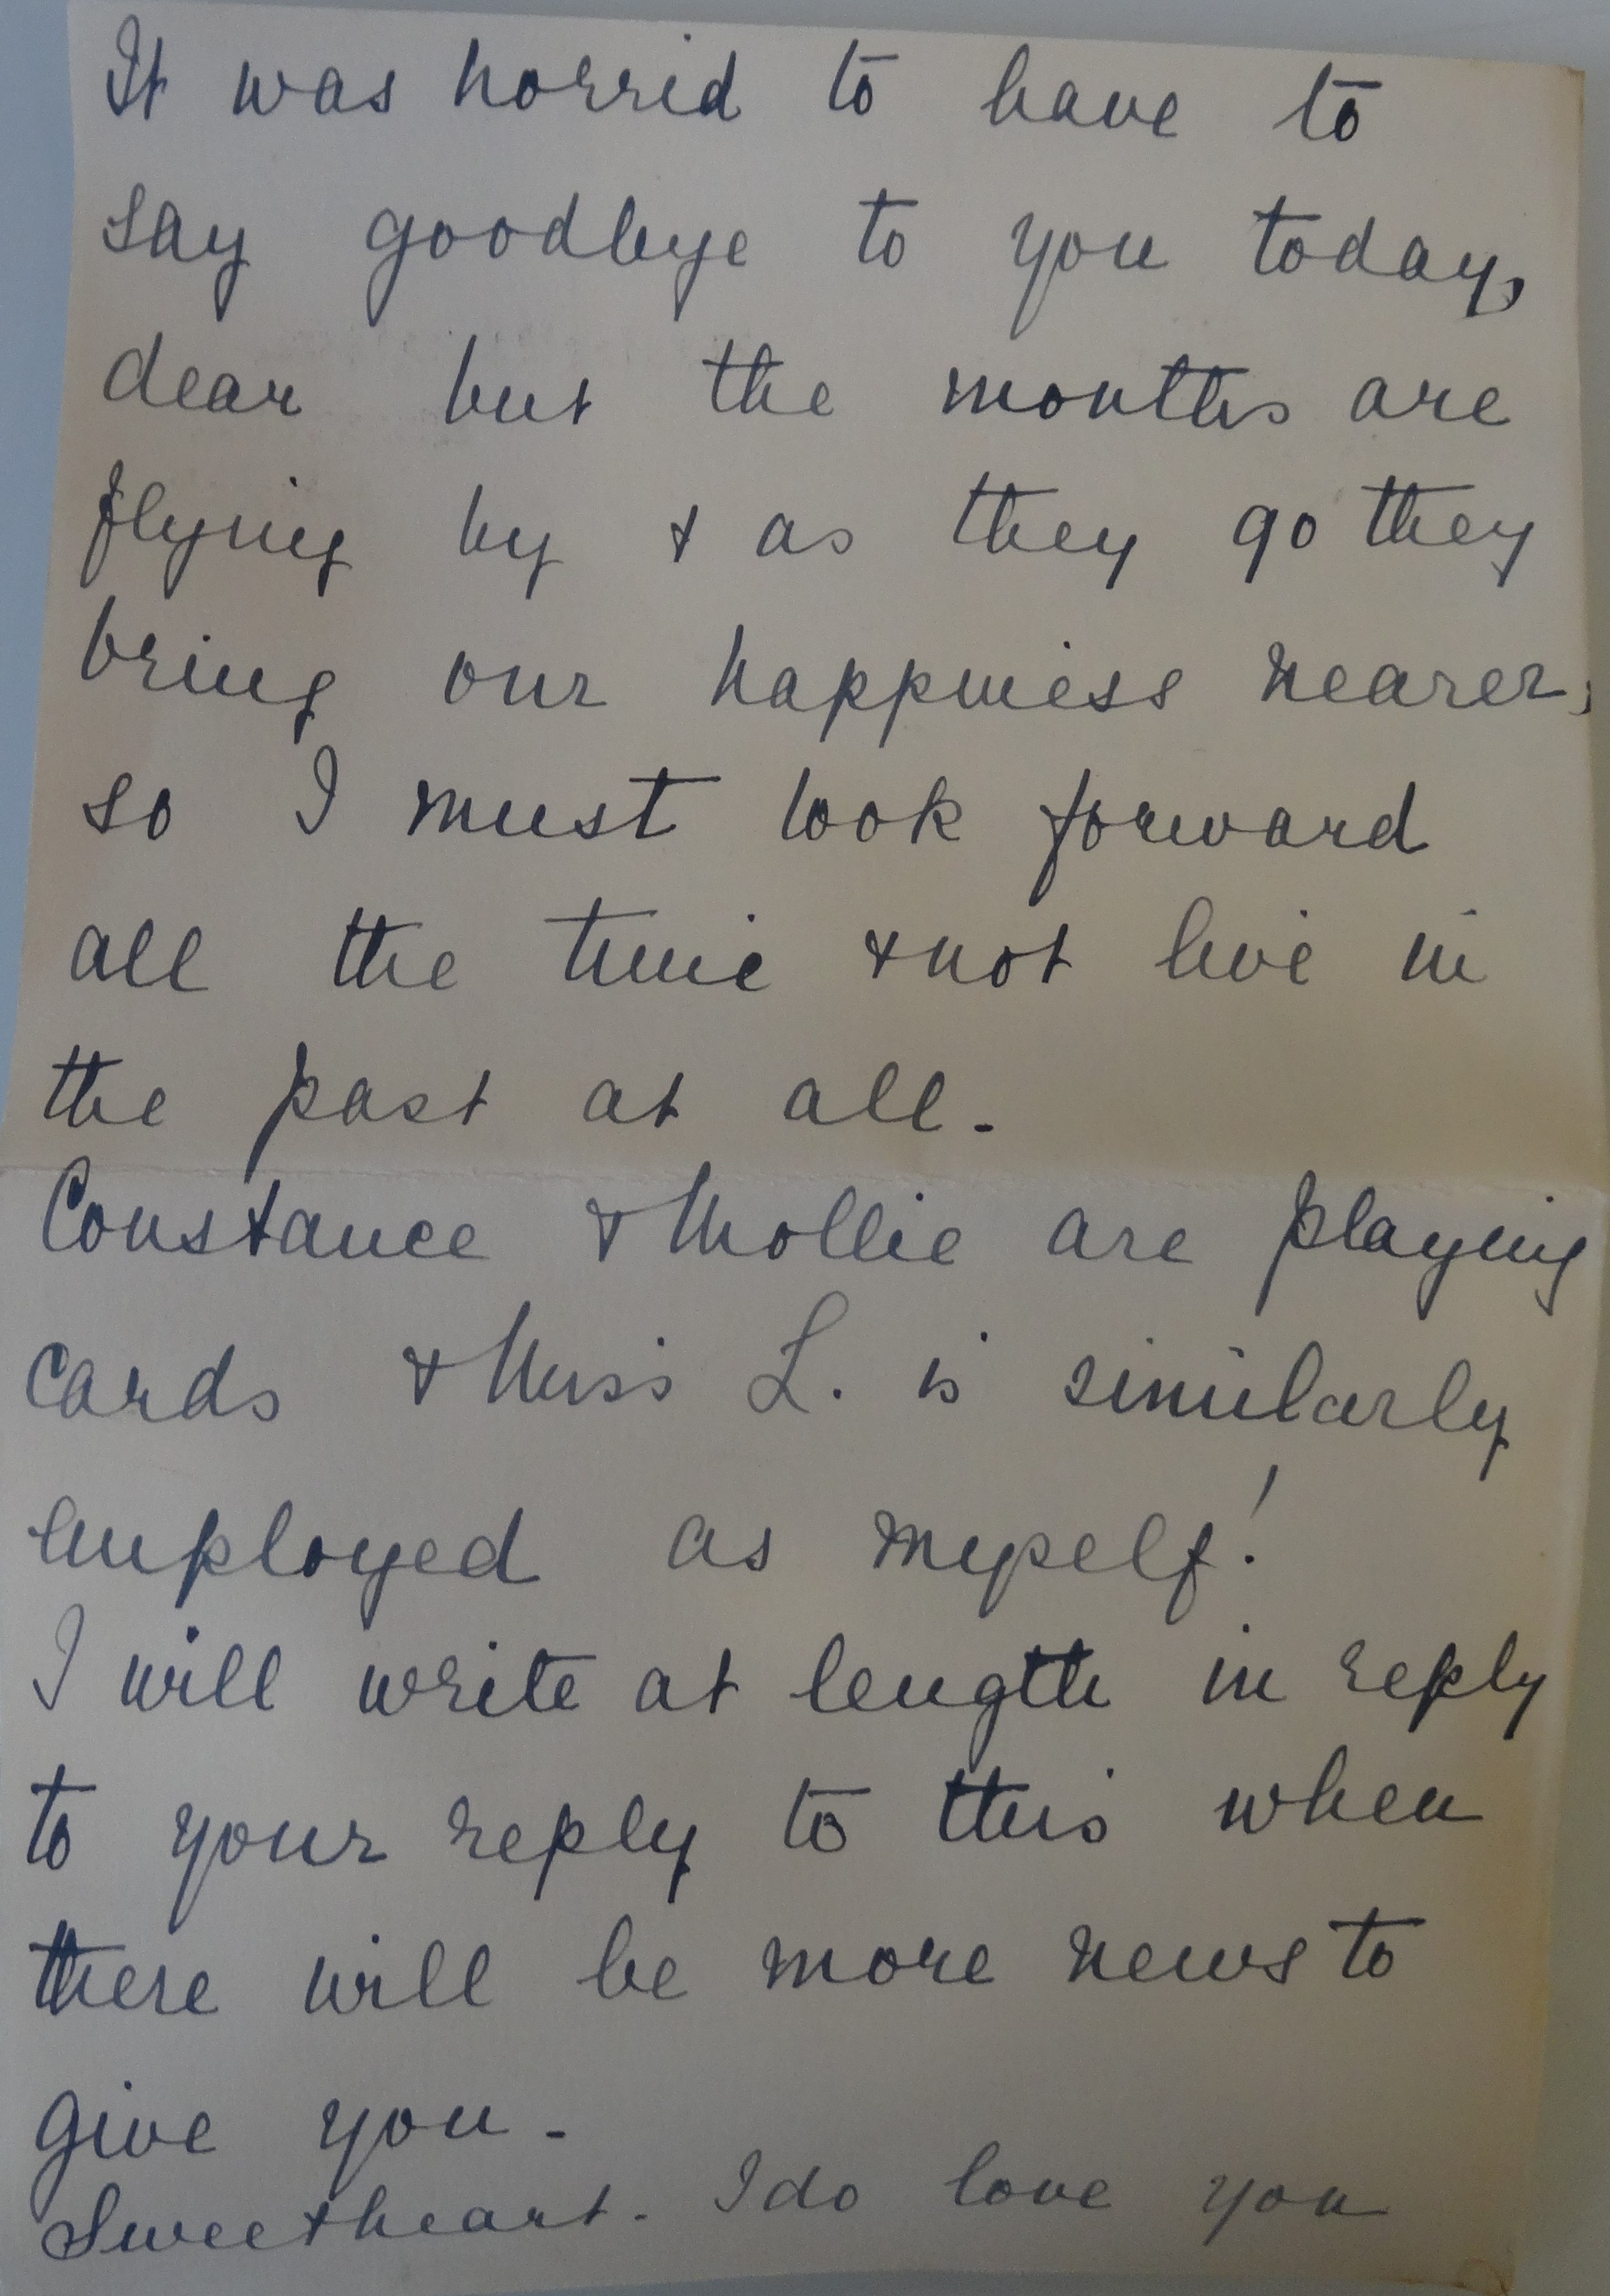 It was horrid to have to
say goodbye to you today,
dear but the months are
flying by & as they go they
bring our happiness nearer,
so I must look forward
all the time & not live in
the past at all -
Constance & Mollie are playing
cards & Miss L. is similarly
employed as myself!
I will write at length in reply
to your reply to this when
there will be more news to
give you -
Sweetheart - I do love you